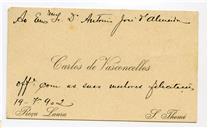 Ao Exmo Snr. Dr. Antonio José d'Almeida
Carlos de Vasconcellos
off.e com as suas melhores felicitações
19-5-902
Roça Laura
S. Thomé